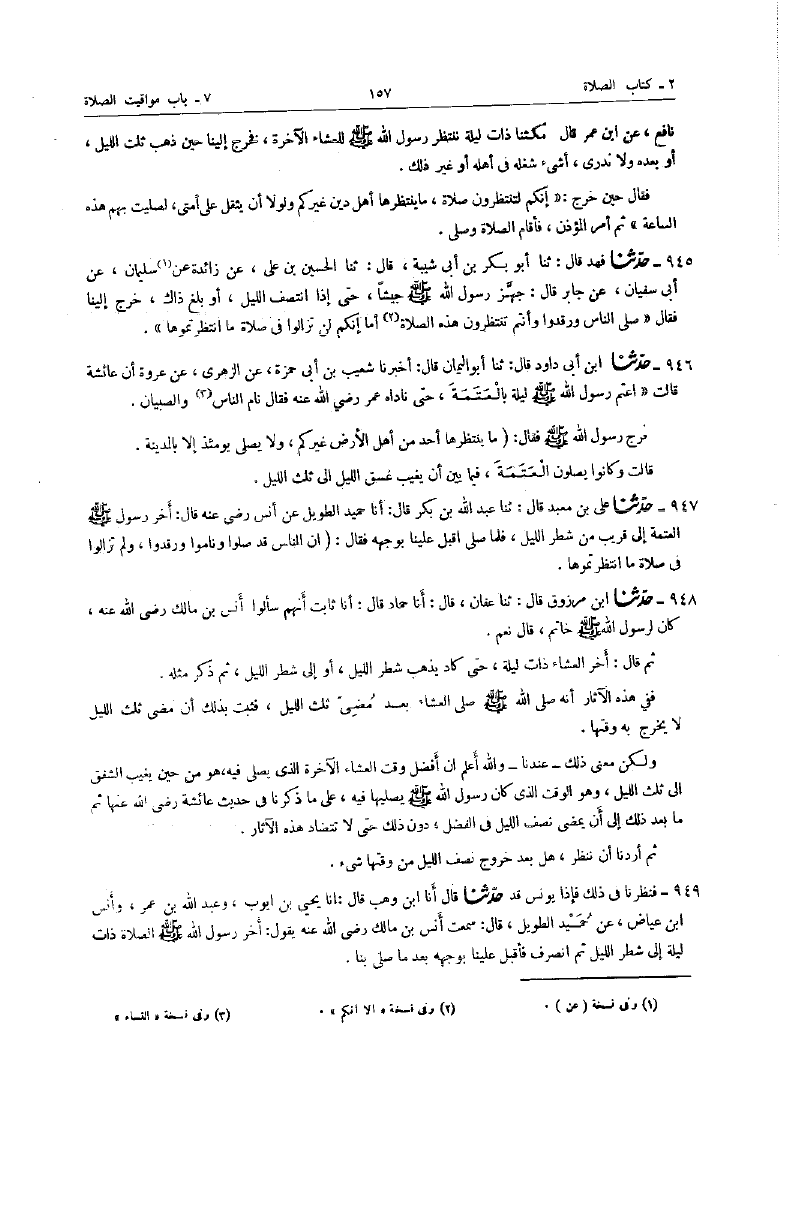 ٢ ـ كتاب الصلاة ١٥٧ ٧ ـ باب مواقيت الصلاة
نافع ، عن ابن عمر قال مكثنا ذات ليلة ننتظر رسول الله ﷺ للعشاء الآخرة ، فخرج إلينا حين ذهب ثلث الليل ،
أو بعده ولا ندرى ، أشىء شغله فى أهله أو غير ذلك .
فقال حين خرج : « إنكم لتنتظرون صلاة ، ماينتظرها أهل دين غيركم ولولا أن يثقل على أمتى، لصليت بهم هذه
الساعة » ثم أمر المؤذن ، فأقام الصلاة وصلى .
٩٤٥ ـ حدثنا فهد قال : ثنا أبو بكر بن أبى شيبة ، قال : ثنا الحسين بن على ، عن زائدة عن(١) سليمان ، عن
أبى سفيان ، عن جابر قال : جهَّز رسول الله ﷺ جيشاً ، حتى إذا انتصف الليل ، أو بلغ ذاك ، خرج إلينا
فقال « صلى الناس ورقدوا وأنتم تنتظرون هذه الصلاة(٢) أما إنكم لن تزالوا فى صلاة ما انتظرتموها » .
٩٤٦ ـ حدثنا ابن أبى داود قال: ثنا أبواليمان قال: أخبرنا شعيب بن أبى حمزة، عن الزهرى ، عن عروة أن عائشة
قالت « اعتم رسول الله ﷺ ليلة بالْعَتَمَةَ ، حتى ناداه عمر رضي الله عنه فقال نام الناس(٣) والصبيان .
فرج رسول الله ﷺ فقال: ( ما ينتظرها أحد من أهل الأرض غيركم ، ولا يصلى يومئذ إلا بالمدينة .
قالت وكانوا يصلون الْعَتَمَةَ ، فيما بين أن يغيب غسق الليل الى ثلث الليل .
٩٤٧ ـ حدثنا على بن معبد قال : ثنا عبد الله بن بكر قال: أنا حميد الطويل عن أنس رضى عنه قال: أخر رسول ﷺ
العتمة إلى قريب من شطر الليل ، فلما صلى اقبل علينا بوجهه فقال : ( ان الناس قد صلوا وناموا ورقدوا ، ولم تزالوا
فى صلاة ما انتظرتموها .
٩٤٨ ـ حدثنا ابن مرزوق قال : ثنا عفان ، قال : أنا حماد قال : أنا ثابت أنهم سألوا أنس بن مالك رضى الله عنه ،
كان لرسول الله ﷺ خاتم ، قال نعم .
ثم قال : أخر العشاء ذات ليلة ، حتى كاد يذهب شطر الليل ، أو إلى شطر الليل ، ثم ذكر مثله .
ففى هذه الآثار أنه صلى الله ﷺ صلى العشاء بعد مُضىّ ثلث الليل ، فثبت بذلك أن مضى ثلث الليل
لا يخرج به وقتها .
ولكن معنى ذلك ـ عندنا ـ والله أعلم ان أفضل وقت العشاء الآخرة الذى يصلى فيه،هو من حين يغيب الشفق
الى ثلث الليل ، وهو الوقت الذى كان رسول الله ﷺ يصليها فيه ، على ما ذكرنا فى حديث عائشة رضى الله عنها ثم
ما بعد ذلك إلى أن يمضى نصف الليل فى الفضل ، دون ذلك حتى لا تتضاد هذه الآثار .
ثم أردنا أن ننظر ، هل بعد خروج نصف الليل من وقتها شىء .
٩٤٩ ـ فنظرنا فى ذلك فإذا يونس قد حدثنا قال أنا ابن وهب قال :انا يحيى بن ايوب ، وعبد الله بن عمر ، وأنس
ابن عياض ، عن حُمَيْد الطويل ، قال: سمعت أنس بن مالك رضى الله عنه يقول: أخر رسول الله ﷺ الصلاة ذات
ليلة إلى شطر الليل ثم انصرف فأقبل علينا بوجهه بعد ما صلى بنا .
(١) وفى نسخة ( عن ) . (٢) وفى نسخة « الا انكم » . (٣) وفى نسخة « النساء »